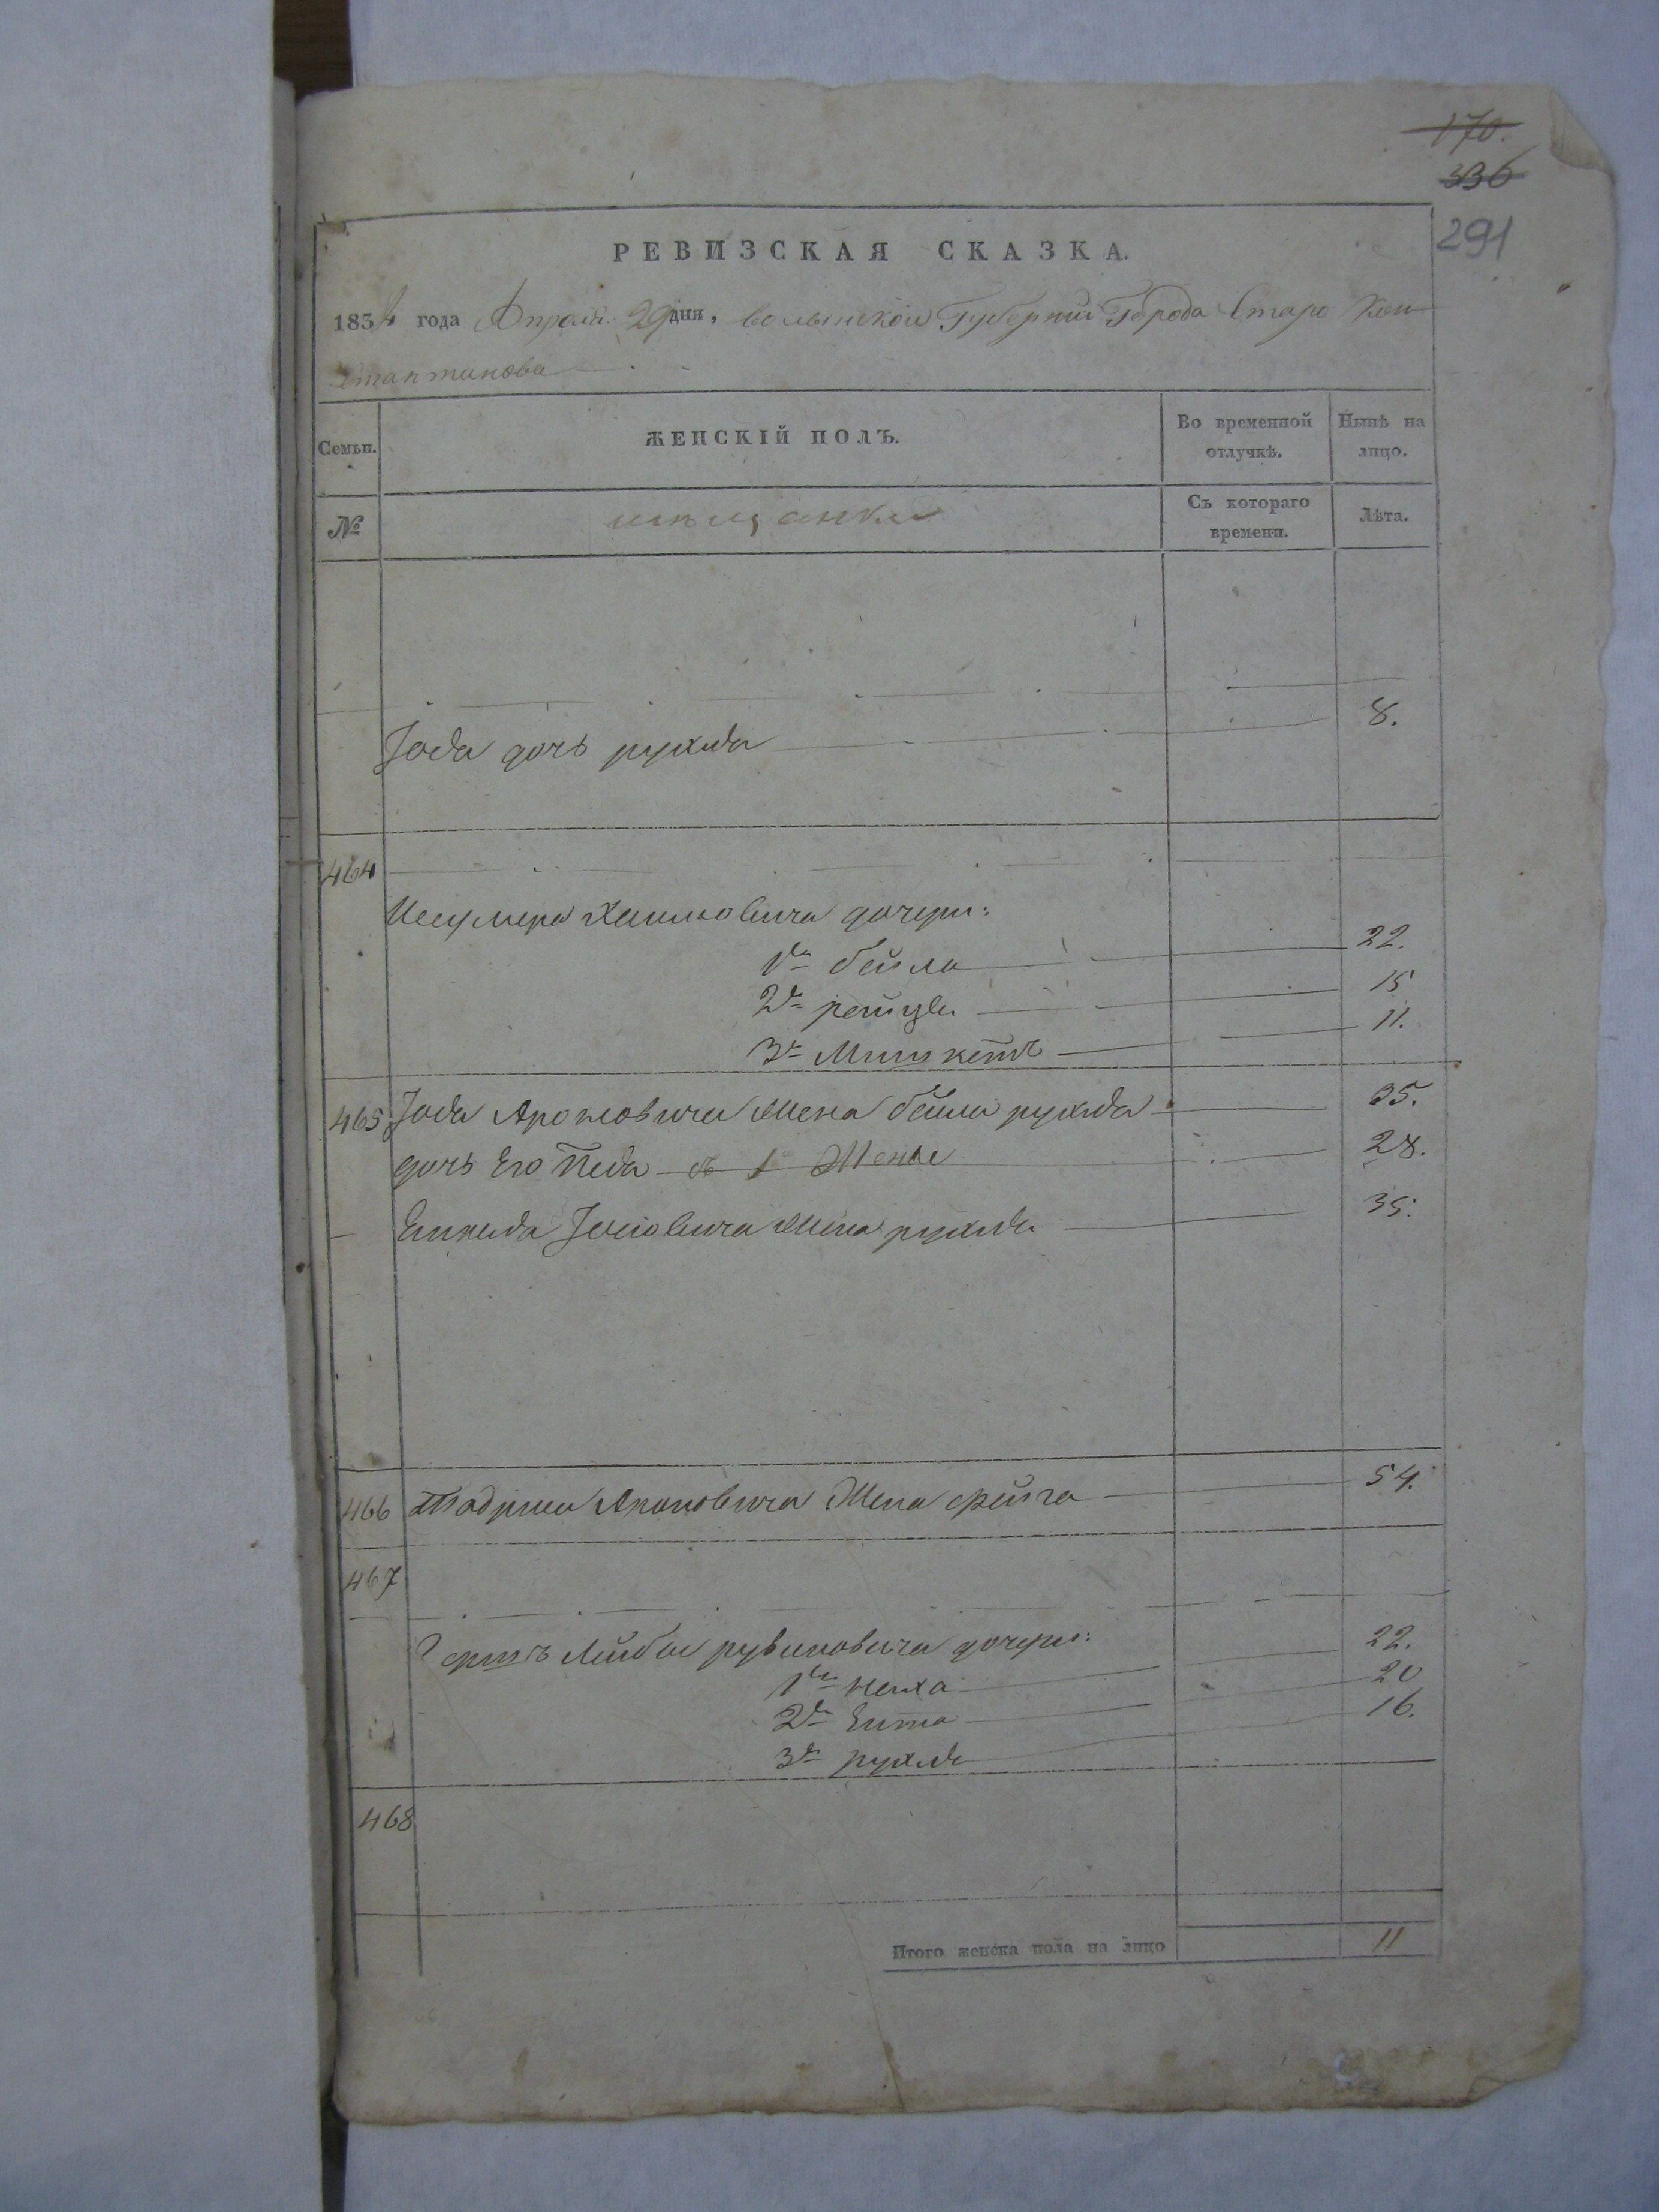 170.
336
291
РЕВИЗСКАЯ СКАЗКА.
1834 года Апреля 29 дня, волынской Губернии Города Старо Кон
стантинова
Семьи. ЖЕНСКІЙ ПОЛЪ. Во временной отлучкѣ. Нынѣ на лицо.
№ мещанки Съ котораго времени. Лѣта.
Іоса дочь рухля 8.
464
Хаимовича дочери:
1я бейла 22.
2я рейзя 15
3я 11.
465 Іося Ароновича Жена бейла рухля 35.
дочь Его песя съ 1 Жене 28.
Іосиовича Жена рухля 35.
466 Ароновича Жена фейга 54.
467
Герш Лейбы рувиновича дочери:
1я неха 22.
2я Ента 20
3я рухля 16.
468
Итого женска пола на лицо 11